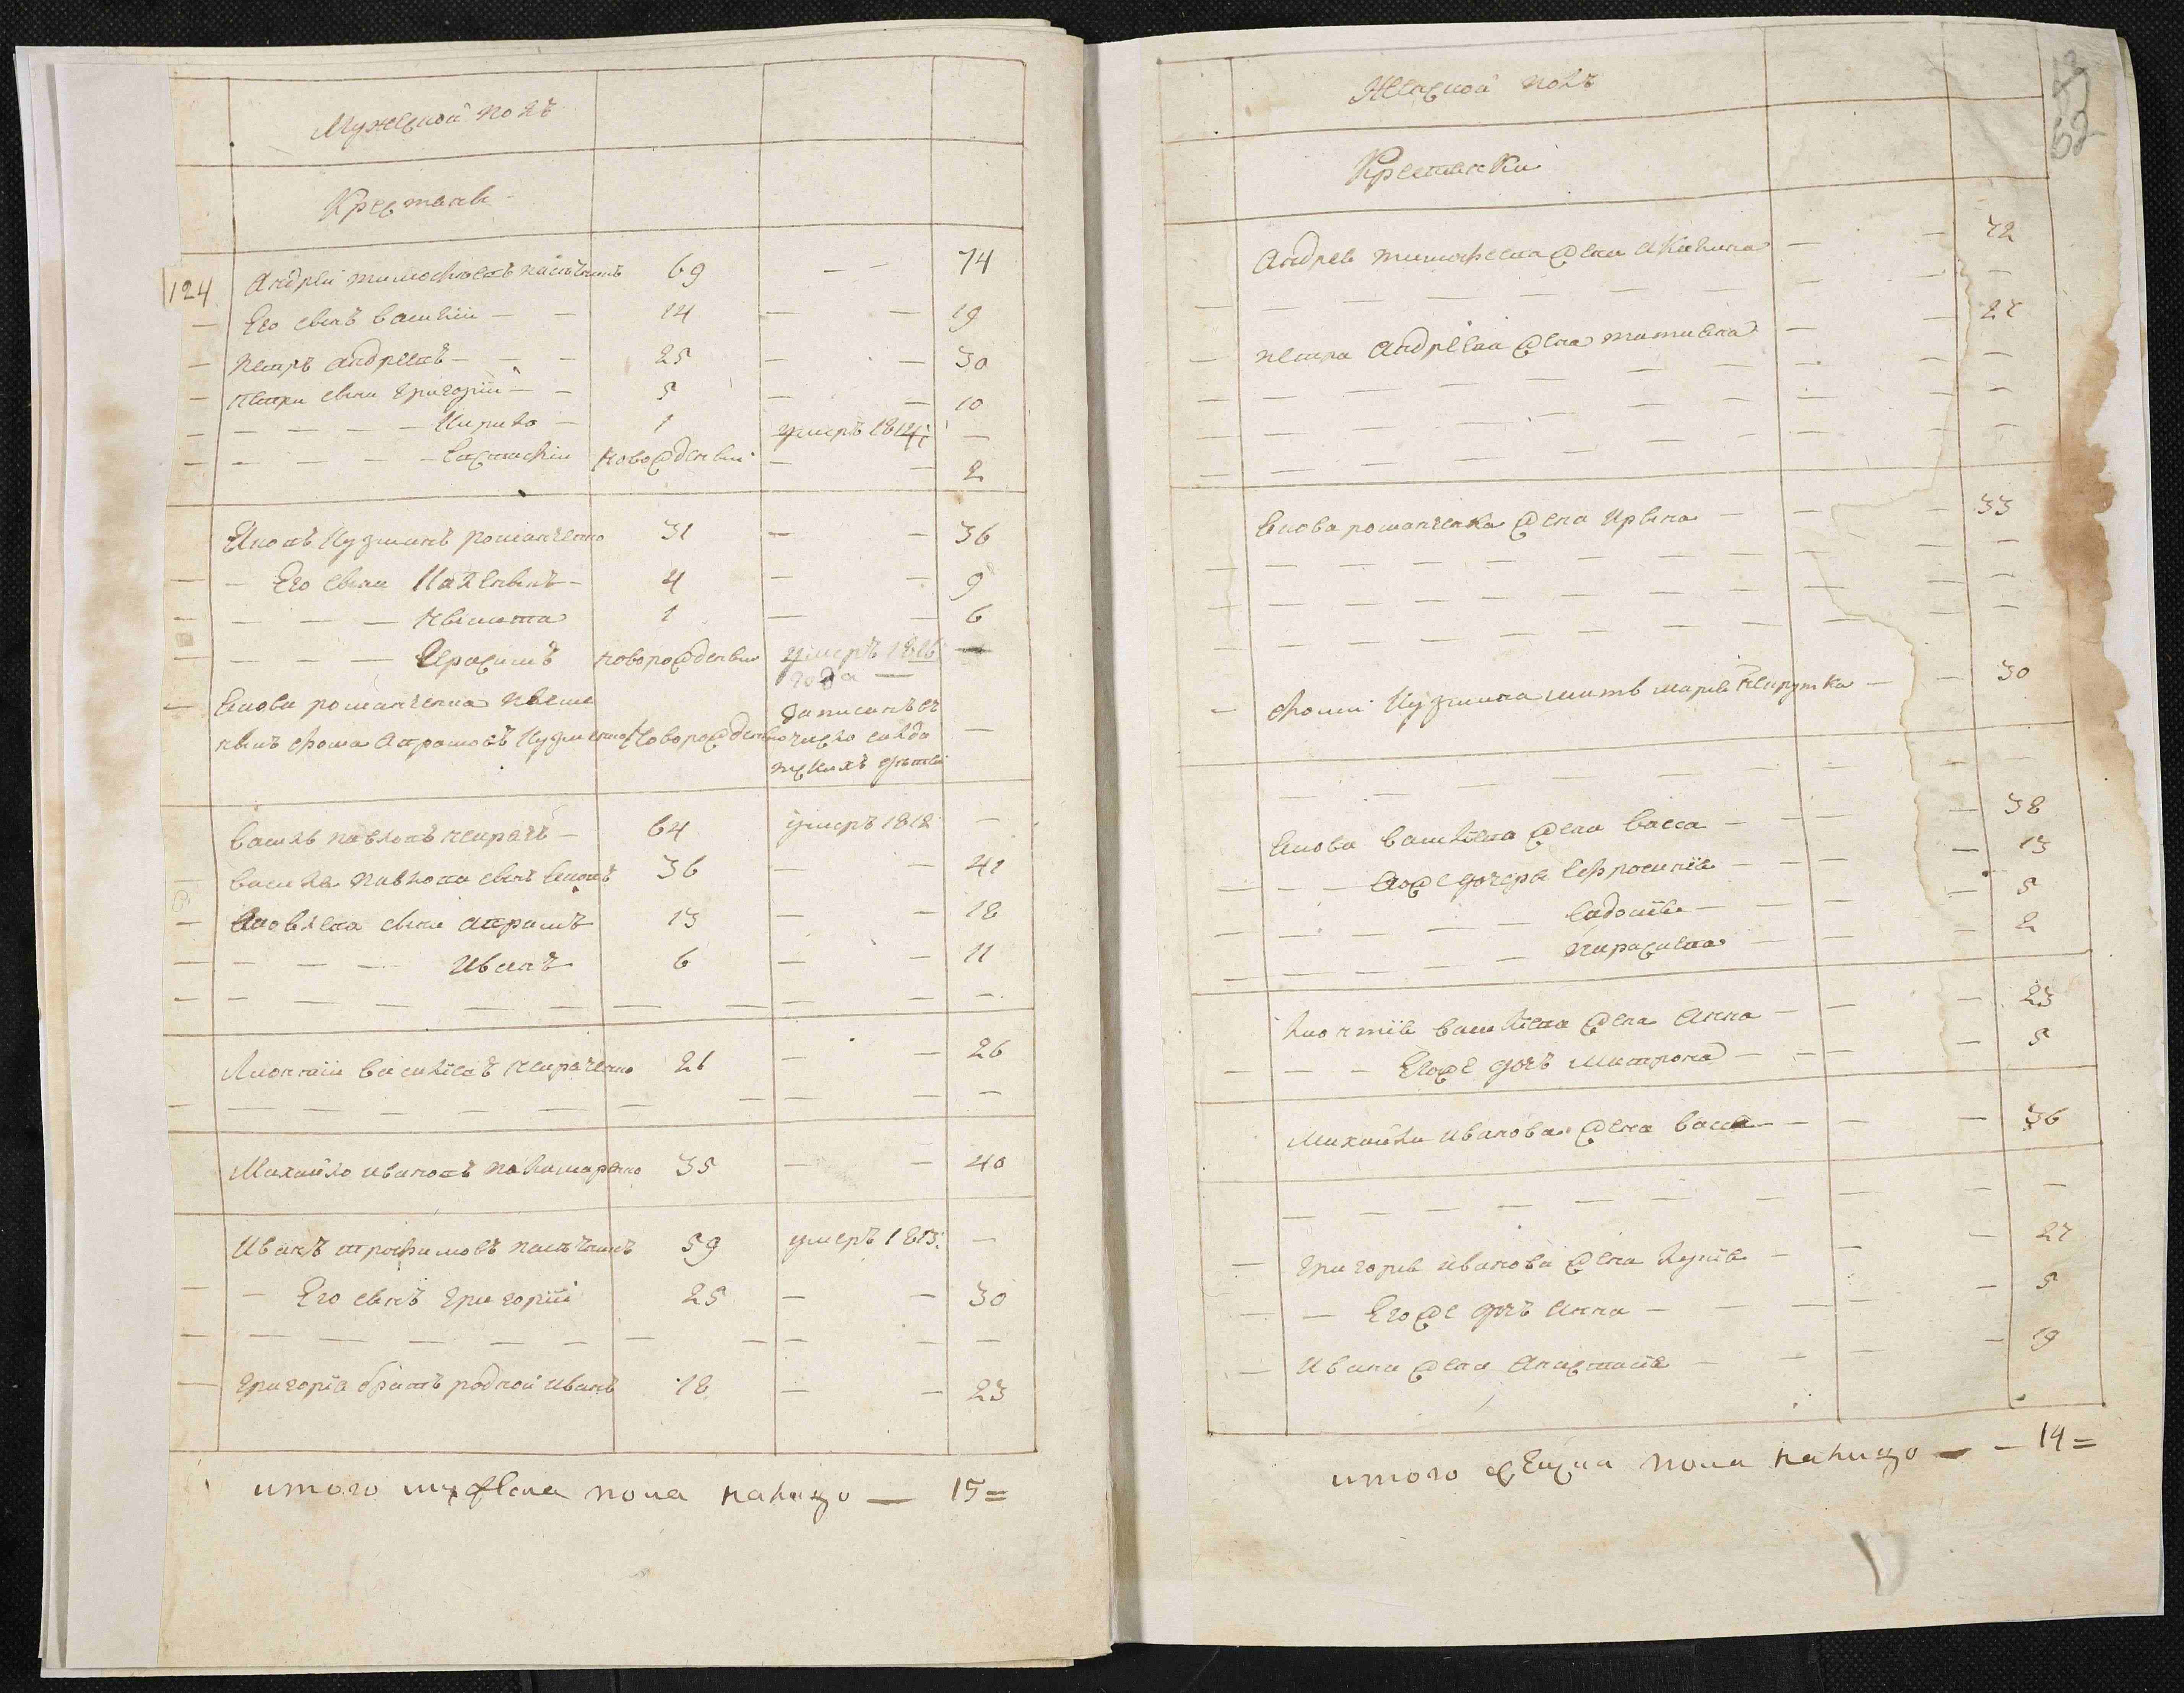 Мужеской полъ
Крестьяне
124 Андрей тимофеевъ 69 — — 74
Его сынъ василий — — 14 — — 19
петръ андреевъ — — — 25 — — 30
петра сыны григорий — — 5 — — 10
— — — — — Кирило — 1 умеръ 1814: —
— — — — — Евстафий новорожденный — — 2
Яковъ Кузминъ романченко 31 — — 36
— Его сыны — 4 — — 9
— — — — Никита 1 — — 6
— — — — Герасимъ новорожденный умеръ 1816
года —
— Якова романченка
фома Абрамовъ новорожденный
записанъ въ
число солда
тскихъ детей —
василь павловъ — 64 умеръ 1812 —
василя павлова сынъ Яковъ 36 — — 41
— Яковлева сыны абрамъ 13 — — 18
— — — — Иванъ 6 — — 11
Леонтий василиевъ 21 — — 26
Михайло ивановъ 35 — — 40
Иванъ трофимовъ 59 умеръ 1813: —
— — Его сынъ Григорий 25 — — 30
— григория братъ родной иванъ 18 — — 23
итого мужеска пола налицо — 15=
62
Женской полъ
Крестьянки
Андрея тимофеева жена Акилина — — 72
— петра Андреева жена татиана — — 27
Якова романченка жена Ирина — — 33
— фомы Кузмина мать марья — — 30
Якова василиева жена васса — — — 38
— — — Егоже дочери Ефросиния — — — 13
— — — — — Евдокия — — — 5
— — — — — параскева — — — 2
Леонтия василиева жена Анна — — — 23
— — — Егоже дочь Матрона — — — 5
Михайла иванова жена васса — — — 36
— григория иванова жена — — — 27
— — Егоже дочь Анна — — — 5
— Ивана жена Анастасия — — — 19
итого женска пола налицо — — 14=